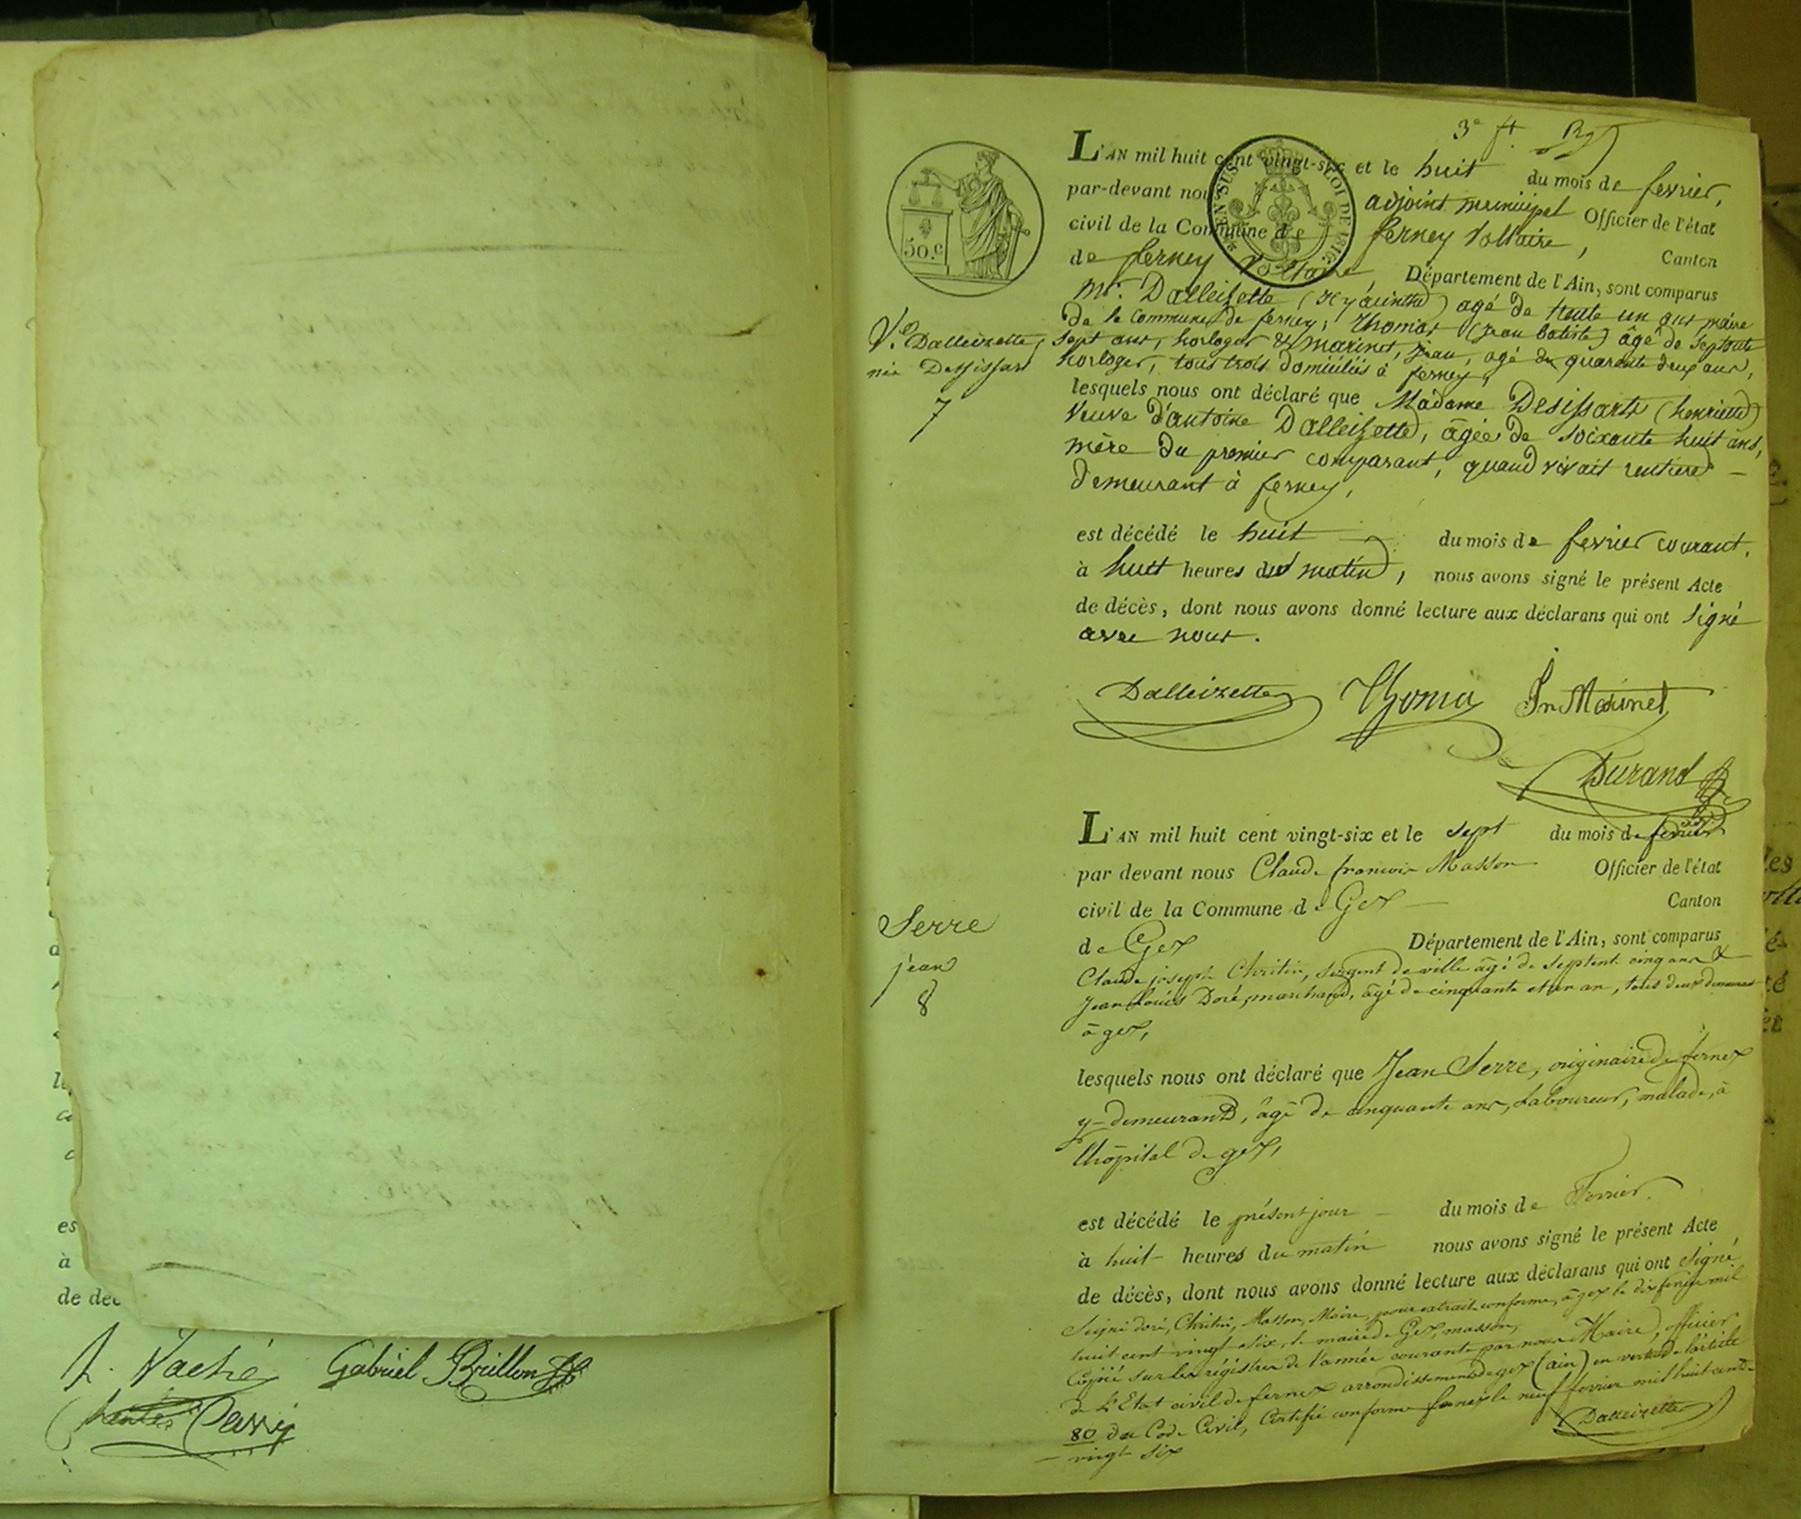 es
à
de déc
Vaché Gabriel Brillon
3e ft.
50.c
L'AN mil huit cent vingt-six et le huit du mois de fevrier,
par-devant nous adjoint municipal Officier de l'état
civil de la Commune de ferney Voltaire, Canton
de ferney Voltaire, Département de l'Ain, sont comparus
Mr. Dalleizette (hyacinthe) agé de trente un ans, maire
de la Commune de ferney, Thomas (jean batiste) âgé de septente
sept ans, horloger & marinet, jean, agé de quarente deux ans,
horloger, tous trois domiciliés à ferney,
Ve. Dalleizette,
née Dessissart
7
lesquels nous ont déclaré que Madame Desissarts (henriette)
Veuve d'antoine Dalleizette, âgée de soixante huit ans,
mère du premier comparant, quand vivait rentiere
demeurant à ferney,
est décédé le huit du mois de fevrier courant.
à huit heures du matin, nous avons signé le présent Acte
de décès, dont nous avons donné lecture aux déclarans qui ont signé
avec nous.
Dalleizette Thomas Jn Marinet
Durand
L'AN mil huit cent vingt-six et le sept du mois de fevrier
par devant nous Claude francois Masson Officier de l'état
civil de la Commune de Gex Canton
de Gex Département de l'Ain, sont comparus
Serre
jean
8
Claude joseph Chritin, sergent de ville âgé de septente cinq ans &
Jean Louis Doré, marchand, âgé de cinquante et un an, tous deux demeurant
à gex,
lesquels nous ont déclaré que Jean Serre, originaire de fernex
y demeurant, âgé de cinquante ans, Laboureur, malade, à
l'hopital de gex,
est décédé le présent jour du mois de Fevrier.
à huit heures du matin nous avons signé le présent Acte
de décès, dont nous avons donné lecture aux déclarans qui ont signé
Signé doré, Chritin, Masson, Maire, pour extrait conforme, à gex le dix fevrier mil
huit cent vingt six, le maire de Gex, masson,
Copié sur les régistres de l'année courante par nous Maire, officier
de L'Etat civil de fernex arrondissement de gex (ain) en vertu de l'article
80 du Code Civil, Certifié conforme fernex le neuf fevrier mil huit cent
vingt six
Dalleizette